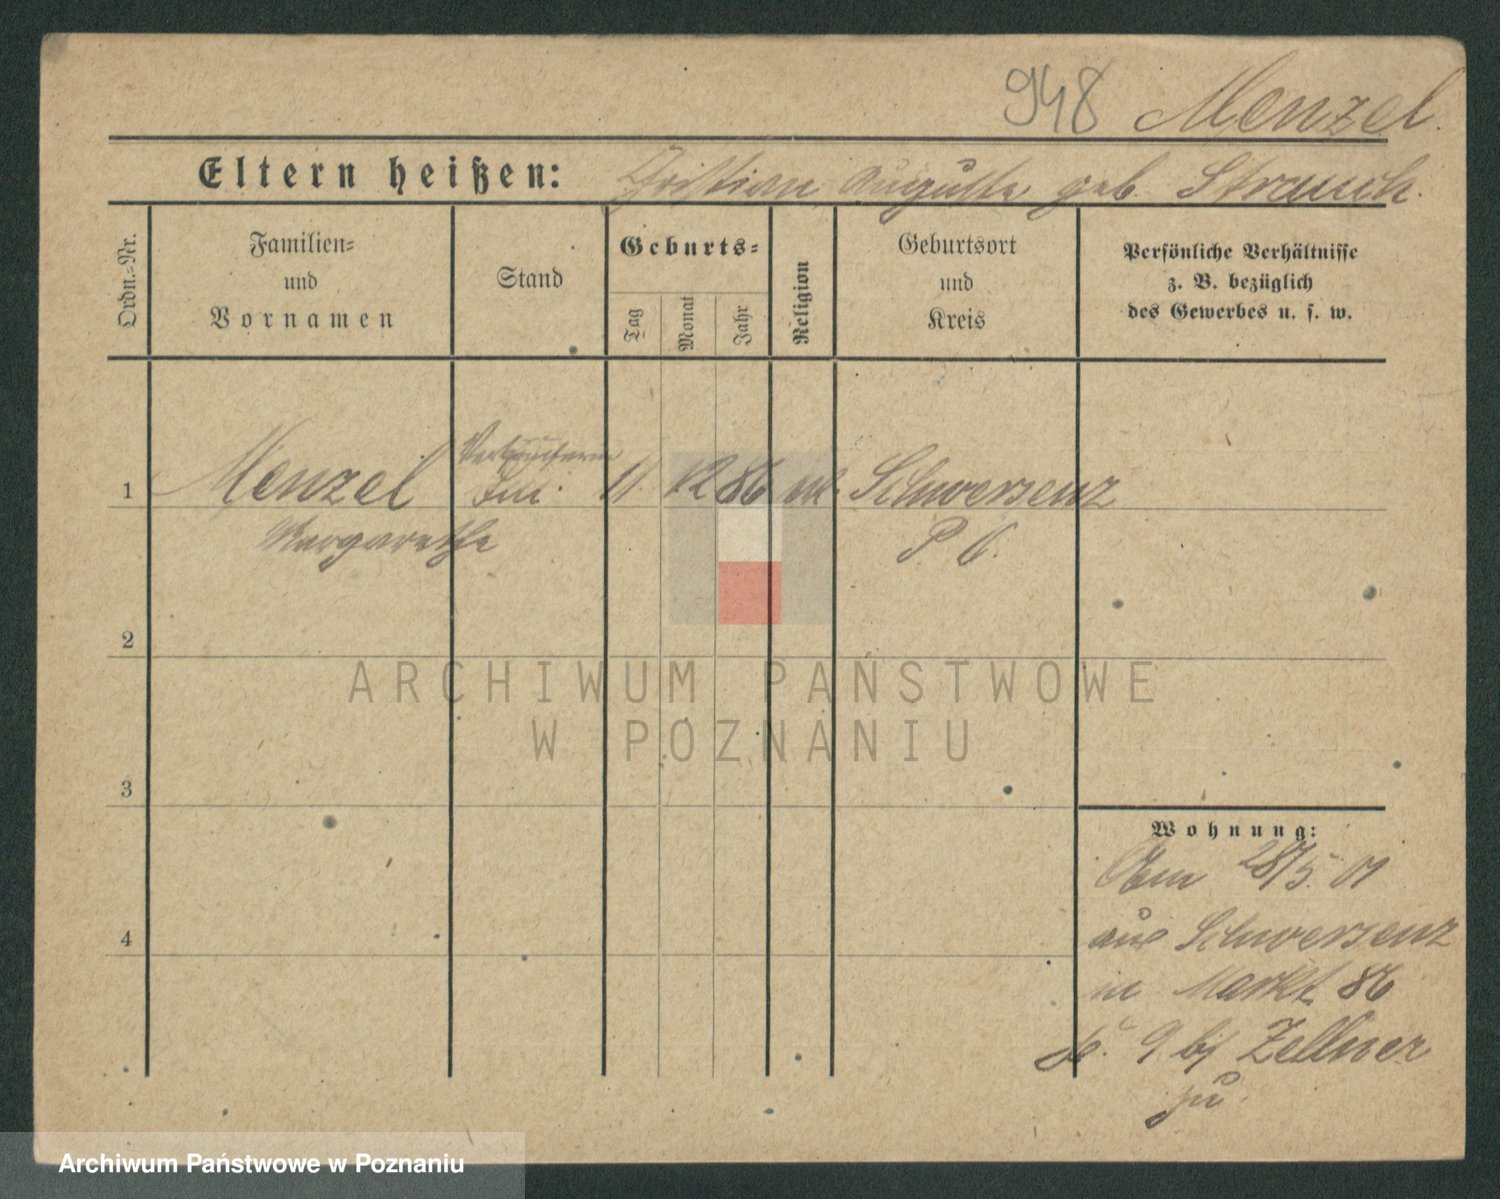 948 Menzel.
Eltern heißen: Christian, Auguste geb. Strauch.
Ordn.-Nr.
Familien- und Vornamen
Stand
Geburts-
Tag
Monat
Jahr
Religion
Geburtsort und Kreis
Persönliche Verhältnisse
z. B. bezüglich
des Gewerbes u. s. w.
Verkäuferin
1 Menzel 11. 12 86 Schwersenz
Margarethe P. O.
2
3
4
ARCHIWUM PAŃSTWOWE
W POZNANIU
Wohnung:
Am 28/5. 01
aus Schwersenz
in Markt 86
bei Zellner
zu.
Archiwum Państwowe w Poznaniu